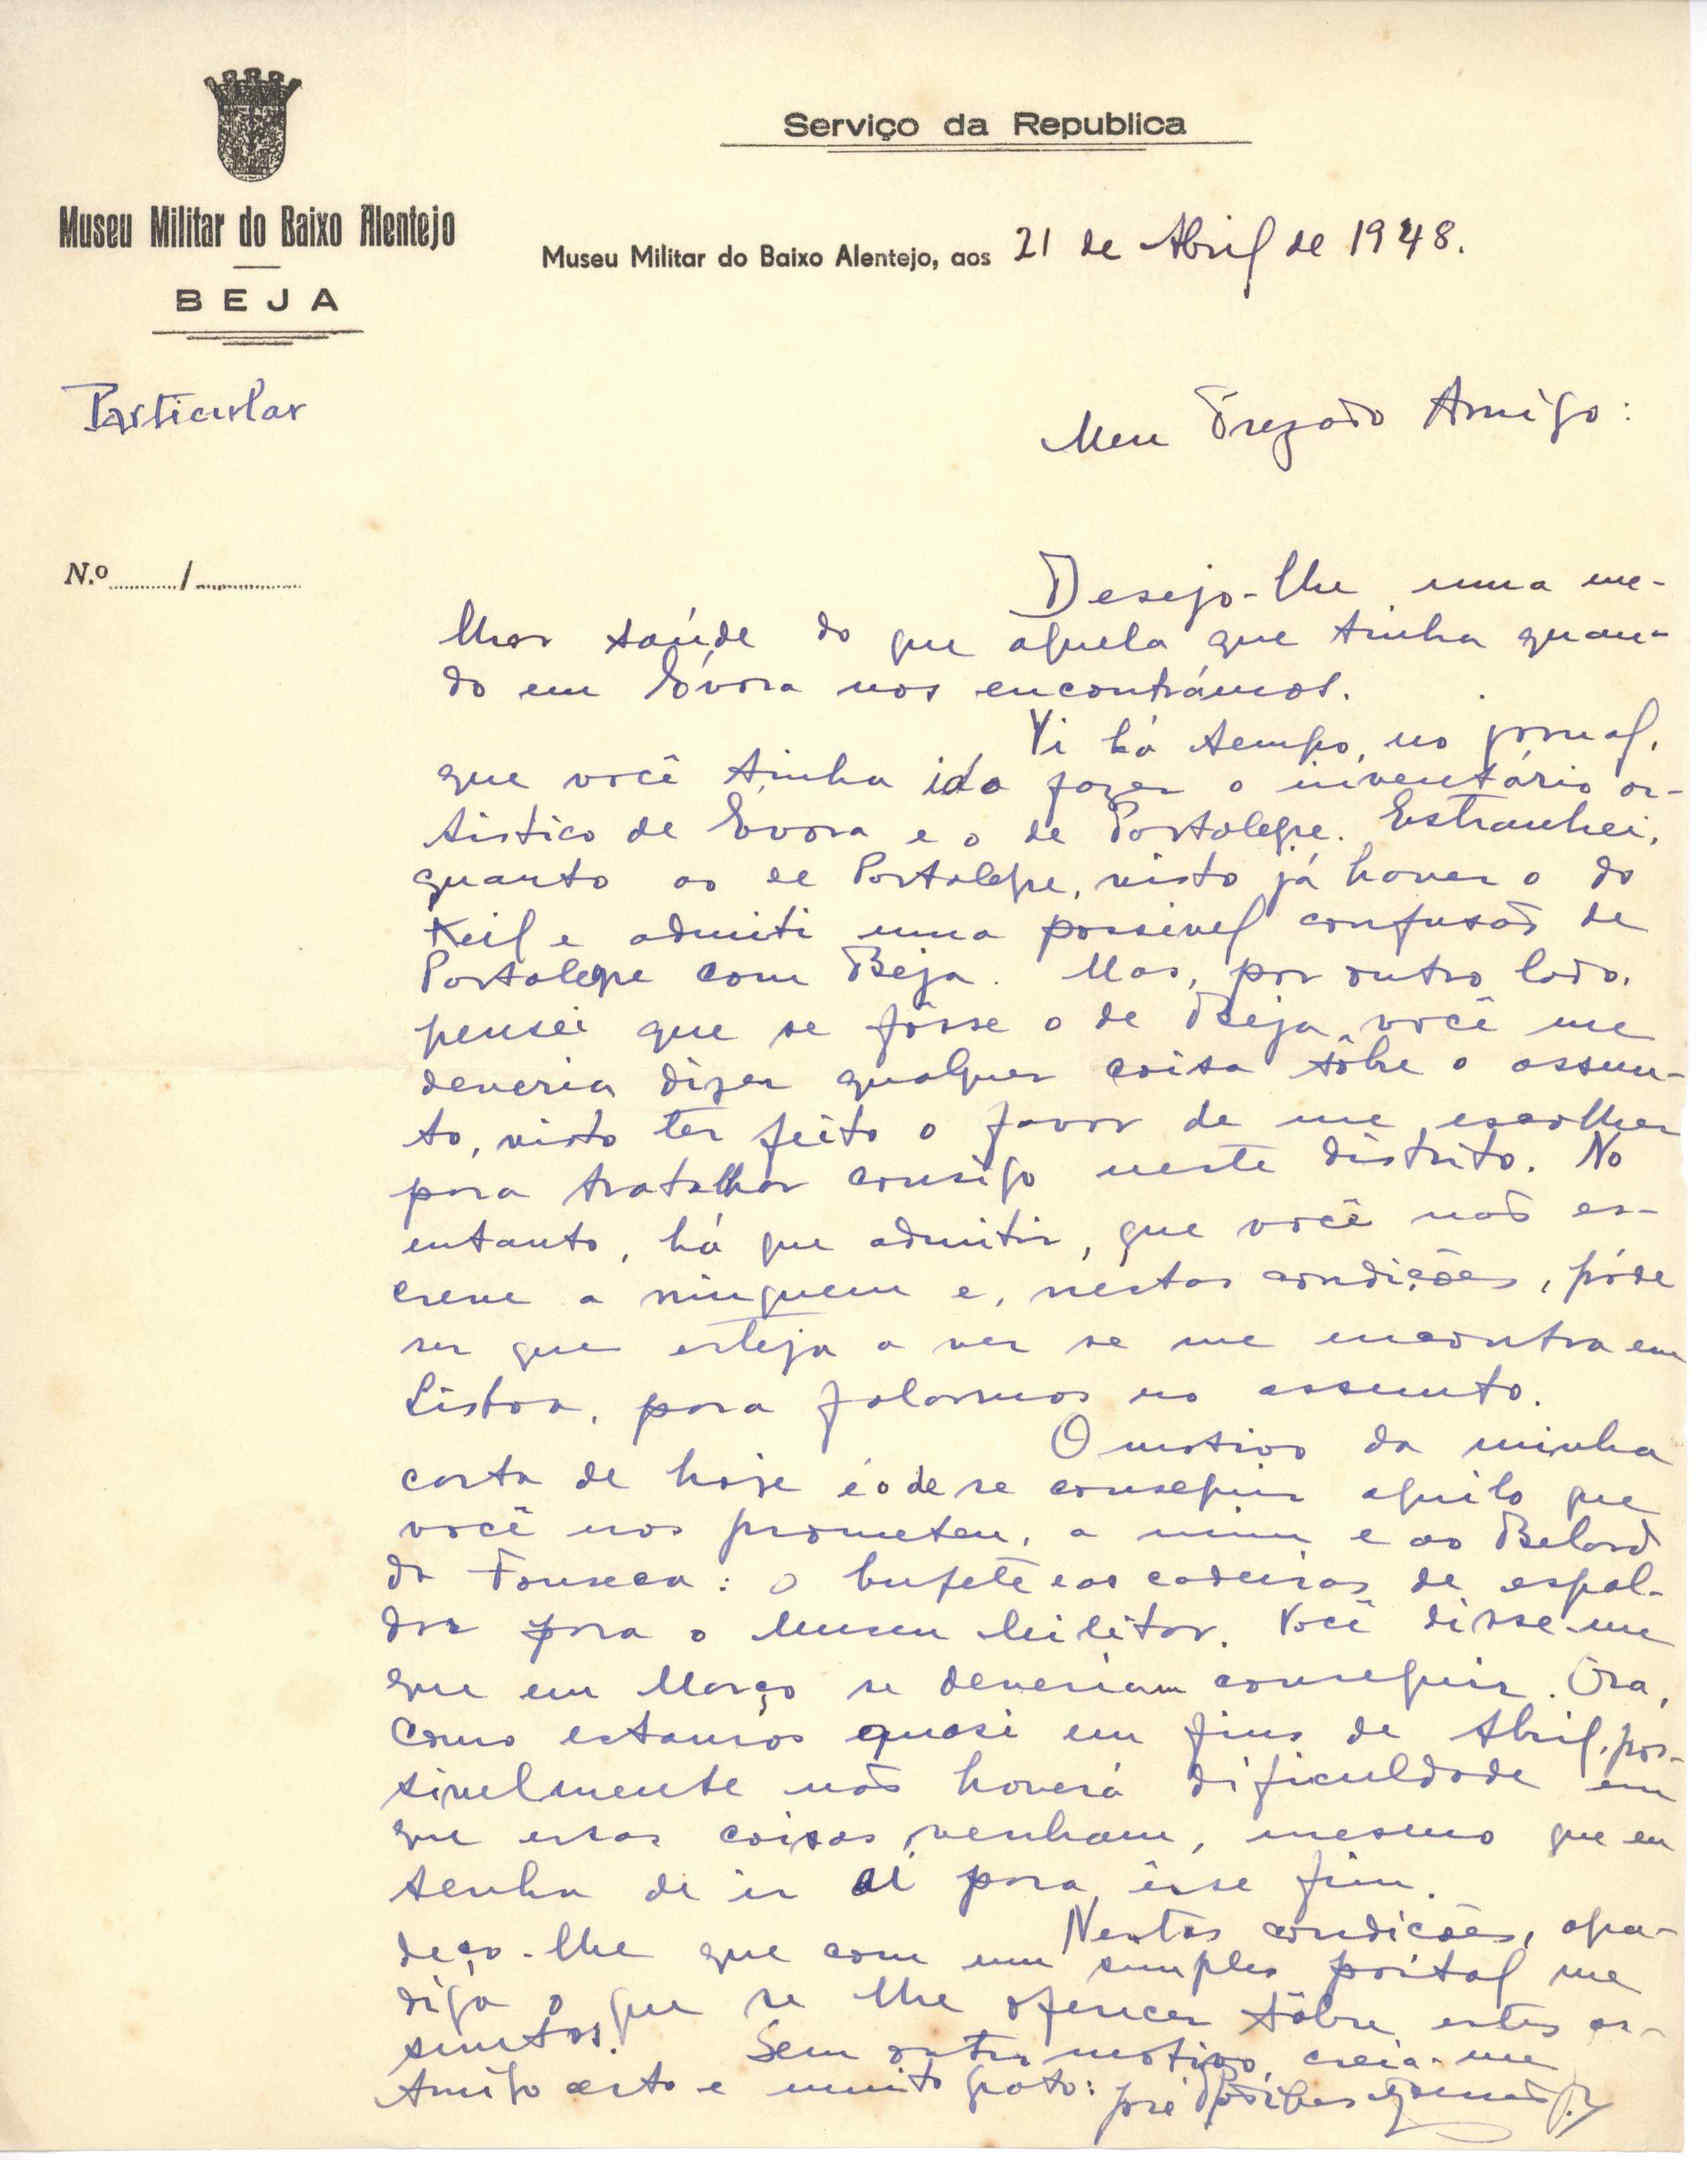 Serviço da Republica
Museu Militar do Baixo Alentejo
BEJA
Museu Militar do Baixo Alentejo, aos 21 de Abril de 1948.
Particular
Meu Prezado Amigo:
N.º ........../..............
Desejo-lhe uma me-
lhor saúde do que aquela que tinha quan-
do em Évora nos encontrámos.
Vi há tempo, no jornal,
que você tinha ido fazer o inventário ar-
tistico de Évora e o de Portalegre. Estranhei,
quanto ao de Portalegre, visto já haver o do
Keil e admiti uma possivel confusão de
Portalegre com Beja. Mas, por outro lado,
pensei que se fôsse o de Beja, você me
deveria dizer qualquer coisa sôbre o assun-
to, visto ter feito o favor de me escolher
para trabalhar consigo neste distrito. No
entanto, há que admitir, que você não es-
creve a ninguem e, nestas condições, póde
ser que esteja a ver se me encontra em
Lisboa, para falarmos no assunto.
O motivo da minha
carta de hoje é o de se conseguir aquilo que
você nos prometeu, a mim e ao Belard
da Fonseca: o bufete e as cadeiras de espal-
dar para o Museu Militar. Você disse-me
que em Março se deveriam conseguir. Ora,
como estamos quasi em fins de Abril, pos-
sivelmente não haverá dificuldade em
que essas coisas venham, mesmo que eu
tenha de ir aí para êsse fim.
Nestas condições, agra-
deço-lhe que com um simples postal me
diga o que se lhe oferecer sôbre estes as-
suntos. Sem outro motivo, creia-me
Amigo certo e muito grato: José